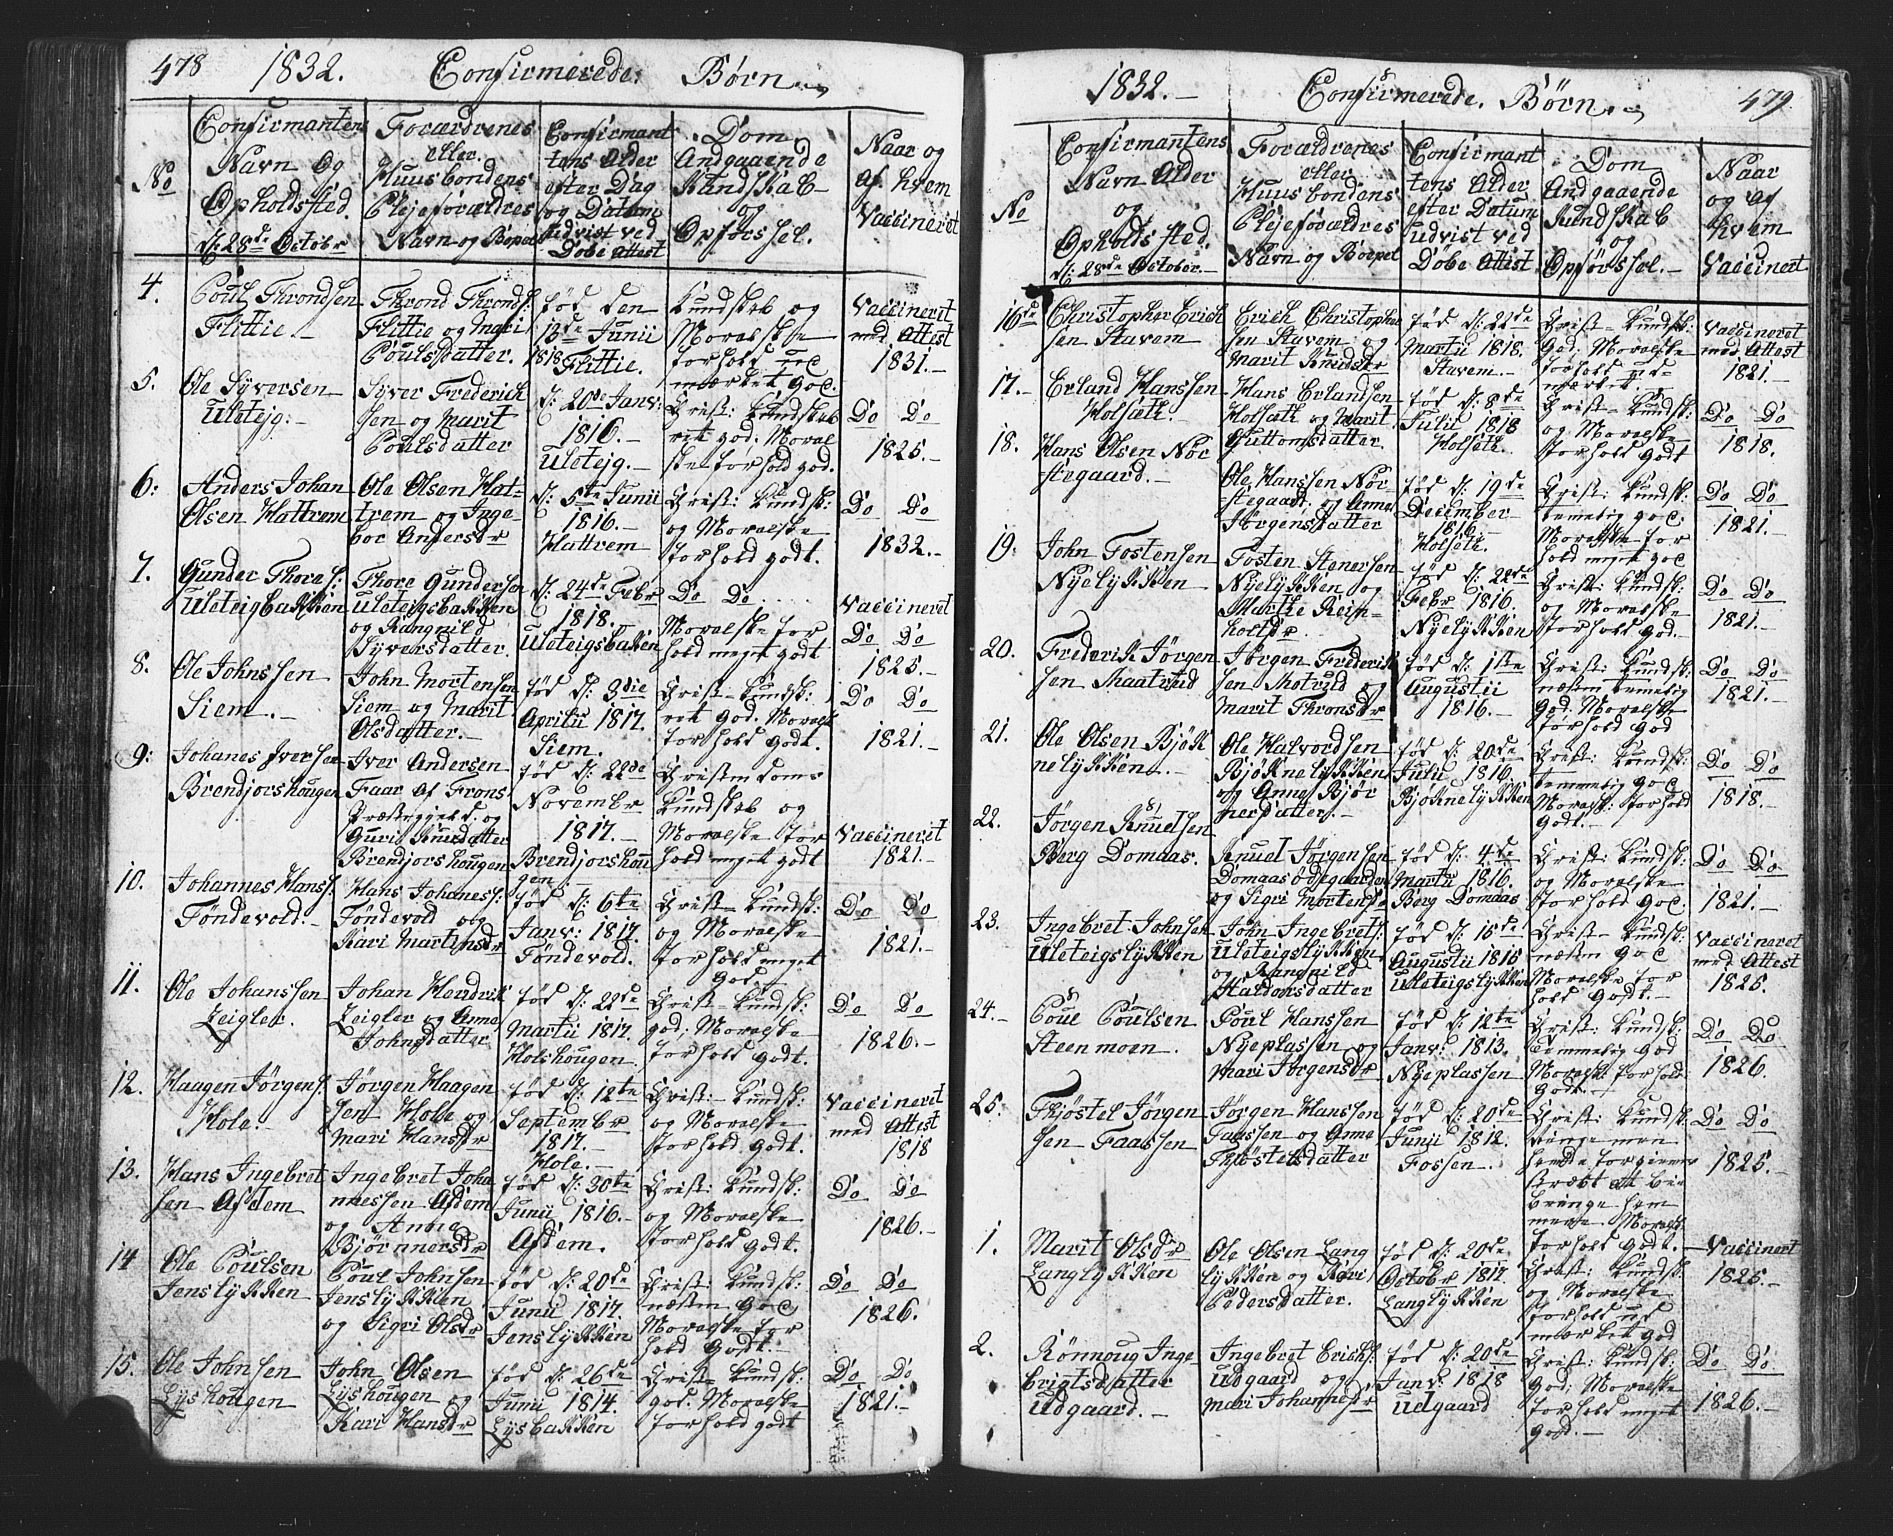 478 1832. Confirmerede Børn
No
Confirmantens
Navn Og
Opholdsted.
d: 28de Octobr
Forældrenes
eller
Huusbondens
Plejeforældres
Navn og Bopæl
Confirmant
tens Alder
efter Dag
og Datum
udvist ved
Döbe Attest
Dom
Andgaaende
Kundskab
og
Opførssel.
Naar og
af hvem
Vaccineret
4.
Poul Throndsen
Flittie.
Thrond Thronds:
Flittie og Mari
Poulsdatter.
fød den
13de Junii
1818
Flittie.
Kundskab og
Moralske
forhold
mærket god.
Vaccineret
med Attest
1831.
5.
Ole Syversen
Uleteig:
Syver Frederich
sen og Marit
Poulsdatter
d: 20de Janv:
1816.
Uletejg.
Christ: Kundskab
ret god: Moral
ske forhold god.
Do Do
1825.
6:
Anders Johan
Olsen Hattrem
Ole Olsen Hat-
trem og Inge-
bor Andersdr
d: 5te Junii
1816.
Hattrem
Christ: Kundsk:
og Moralske
forhold godt.
Do Do
1832.
7.
Gunder Thores:
Uleteigbakken
Thore Gunderse
Uleteigsbakken
og Rangnild
Syversdatter.
d: 24de Febr
1818.
Uleteigsbakken
Do Do
Moralske for
hold meget godt
Vaccineret
Do Do
1825.
8.
Ole Johnssen
Siem.
John Mortensen
Siem og Marit
Olsdatter.
fød d: 3die
Aprilii 1817.
Siem.
Christ- Kundsk:
ret god. Moralsk
forhold godt.
Do Do
1821.
9:
Johanes Iversen
Brendjorshougen
Iver Andersen
Faar af Frons
Præstegjeld. og
Guri Knudsdatter
Brendjorshougen
fød d: 22de
November
1817.
Brendjorshou
gen
Christendoms
Kundskab og
Moralske for
hold meget godt
Vaccineret
1821.
10.
Johannes Hanss:
Tøndevold.
Hans Johaness:
Tøndevold og
Kari Martinsdr
fød d: 6te
Janv: 1817.
Tøndevold.
Christ- Kundsk:
og Moralske
forhold meget
god.
Do Do
1821.
11.
Ole Johanssen
Zeigler.
Johan Hendrik
Zeigler og Anne
Johnsdatter
fød d: 22de
Martii 1817.
Holshougen
Christ- Kundsk:
god; Moralske
forhold godt.
Do Do
1826.
12.
Haagen Jørgens:
Hole.
Jørgen Haagen
sen Hole og
Mari Hansdr
fød d: 12te
Septembr
1817.
Hole.
Christ- Kundsk:
og Moralske
forhold godt.
Vaccineret
med Attest
1818
13.
Hans Ingebret
sen Afdem
Ingebret Joha
nnessen Afdem
og Anbia
Bjørnnersdr
fød d: 30te
Junii 1816.
Afdem.
Christ: Kundsk:
og Moralske
forhold godt.
Do Do
1826.
14
Ole Poulsen
Jenslykken
Poul Johnsen
Jenslykken
og Sigri Olsdr
fød d: 20de
Junii 1817.
Jenslykken
Christ: Kundsk:
næsten god,
Moralske for
hold godt.
Do Do
1826.
15.
Ole Johnsen
Lyshougen
John Olsen
Lyshougen og
Kari Hansdr
fød d: 26de
Junii 1814.
Lysbakken
Christ- Kundsk:
god. Moralske
forhold godt
Do Do
1821.
1832. Confirmerede. Børn 479
No
Confirmantens
Navn Alder
og
Opholdssted.
d: 28de October.
Forældrenes
eller
Huusbondens
Plejeforældres
Navn og Boepel
Confirmant
tens Alder
efter Datum
udvist ved
Døbe Attist
Dom
Andgaaende
Kundskab
og
Opførssel.
Naar
og af
hvem
Vaccinert
16de
Christopher Erich
sen Stavem
Erich Christopher
sen Stavem og
Marit Knudsdr
fød d: 22de
Martii 1818.
Stavem.
Christ- Kundsk:
god; Moralske
forhold ude
mærket
Vaccineret
med Attest
1821.
17.
Erland Hanssen
Holsæth.
Hans Erlandsen
Holsæth og Marit
Guttomsdatter.
fød d: 8de
Julii 1818
Holseth.
Christ- Kundsk:
og Moralske
forhold godt
Do Do
1818.
18.
Hans Olsen Nor
stegaard.
Ole Hanssen Nor-
stegaard, og Anne
Jørgensdatter
fød d: 19de
December
1816.
Holseth.
Christ: Kundsk:
temmelig god.
Moralske for
hold meget god
Do Do
1821.
19.
John Tostensen
Nyelykken
Tosten Stenersen
Nyelykken og
Marthe Reim-
holtdr.
fød d: 22de
Febr 1816.
Nyelykken
Christ: Kundsk:
og Moralske
forhold god.
Do Do
1821.
20.
Frederik Jörgen
sen Maatvud
Jørgen Frederik
sen Motvud og
Marit Thronsdr
fød d: 1ste
Augustii
1816.
Christ: Kundsk:
næsten temmelig
god. Moralske
forhold god
Do Do
1821.
21.
Ole Olsen Bjøk
nelykken.
Ole Halvordsen
Bjøknelykken
og Anne Bjør
nersdatter.
fød d: 20de
Julii 1816.
Bjøknelykken
Christ: Kundsk:
temmelig god
Moralsk: forhold
godt.
Do Do
1818.
22.
Jørgen Knudsen
Berg Domaas.
Knuel Jørgensen
Domaasödegaarden
og Sigri Mortensdr
fød d: 4de
Martii 1816.
Berg Domaas
Christ: Kundsk:
og Moralske
forhold god.
Do Do
1821.
23.
Ingebret Johnsen
Uleteigslykken
John Ingebrets:
Uleteigslykken
og Rangnild
Haldorsdatter
fød d: 15de
Augustii 1816
Uleteigslykken
Christ- Kundsk:
næsten god
Moralske for
hold godt.
Vaccineret
med Attest
1825.
24.
Poul Poulsen
Steenmoen.
Poul Hanssen
Nyeplassen og
Mari Jørgensdr
fød d: 12te
Janv: 1813.
Nyeplassen
Christ: Kundsk:
temmelig god
Moralsk: forhold
godt.
Do Do
1826.
25.
Thjøstel Jørgen
sen Faassen
Jørgen Hanssen
Faassen og Anne
Thjöstelsdatter
fød d: 20de
Junii 1812.
Fossen.
Christ: Kundsk:
ringe men
bringe ham
mere. Moralsk:
forhold godt.
Do Do
1825.
1.
Marit Olsdr
Langlykken
Ole Olsen Lang
lykken og Kari
Pedersdatter.
fød d: 20de
Octobr 1817
Langlykken
Christ: Kundsk:
og Moralske
forhold ud
mærket god
Vaccinert
1825.
2.
Rønnoug Inge-
brigtsdatter
Udgaard.
Ingebret Erichs:
Udgaard og
Mari Johannesdr
fød d: 20de
Janv: 1818
Udgaard
Christ: Kundsk:
god; Moralske
forhold meget
god.
Do Do
1826.